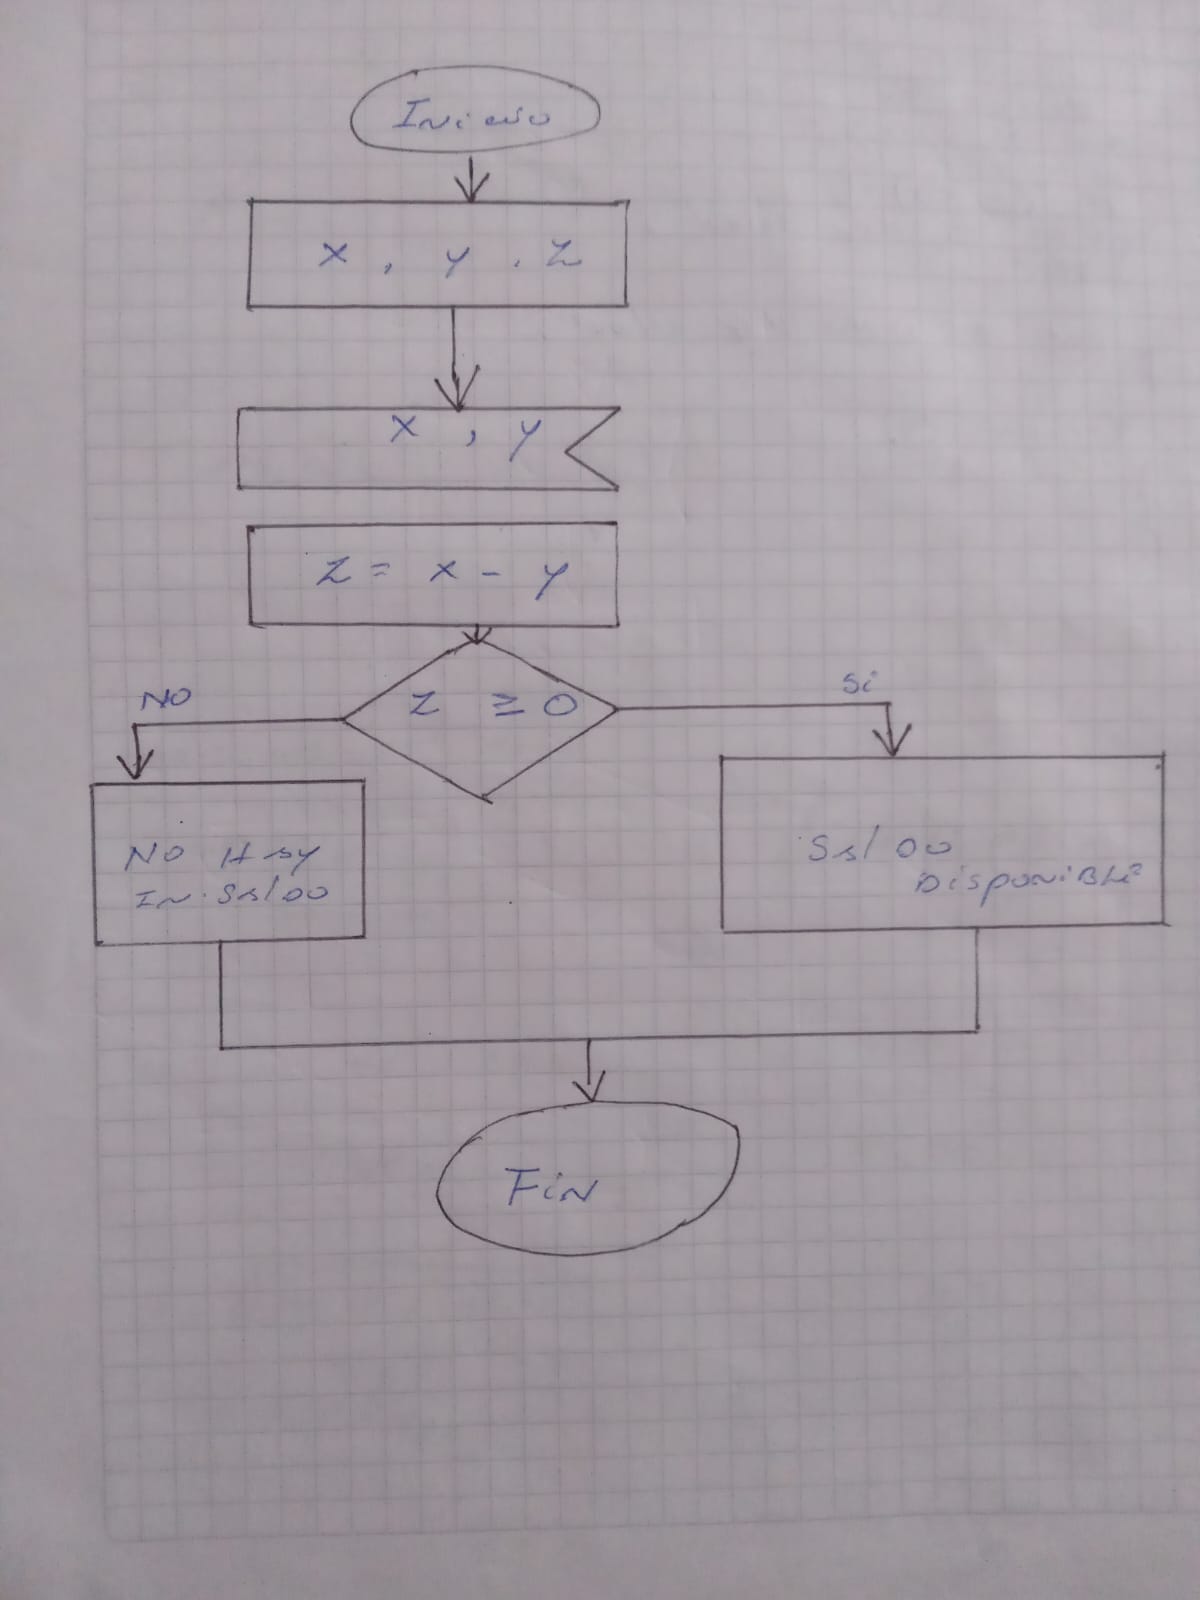 Inicio
x , y , z
x , y
z = x - y
z ≥ 0
NO
Si
NO Hay
IN. Saldo
Saldo
DisponiBLE
Fin